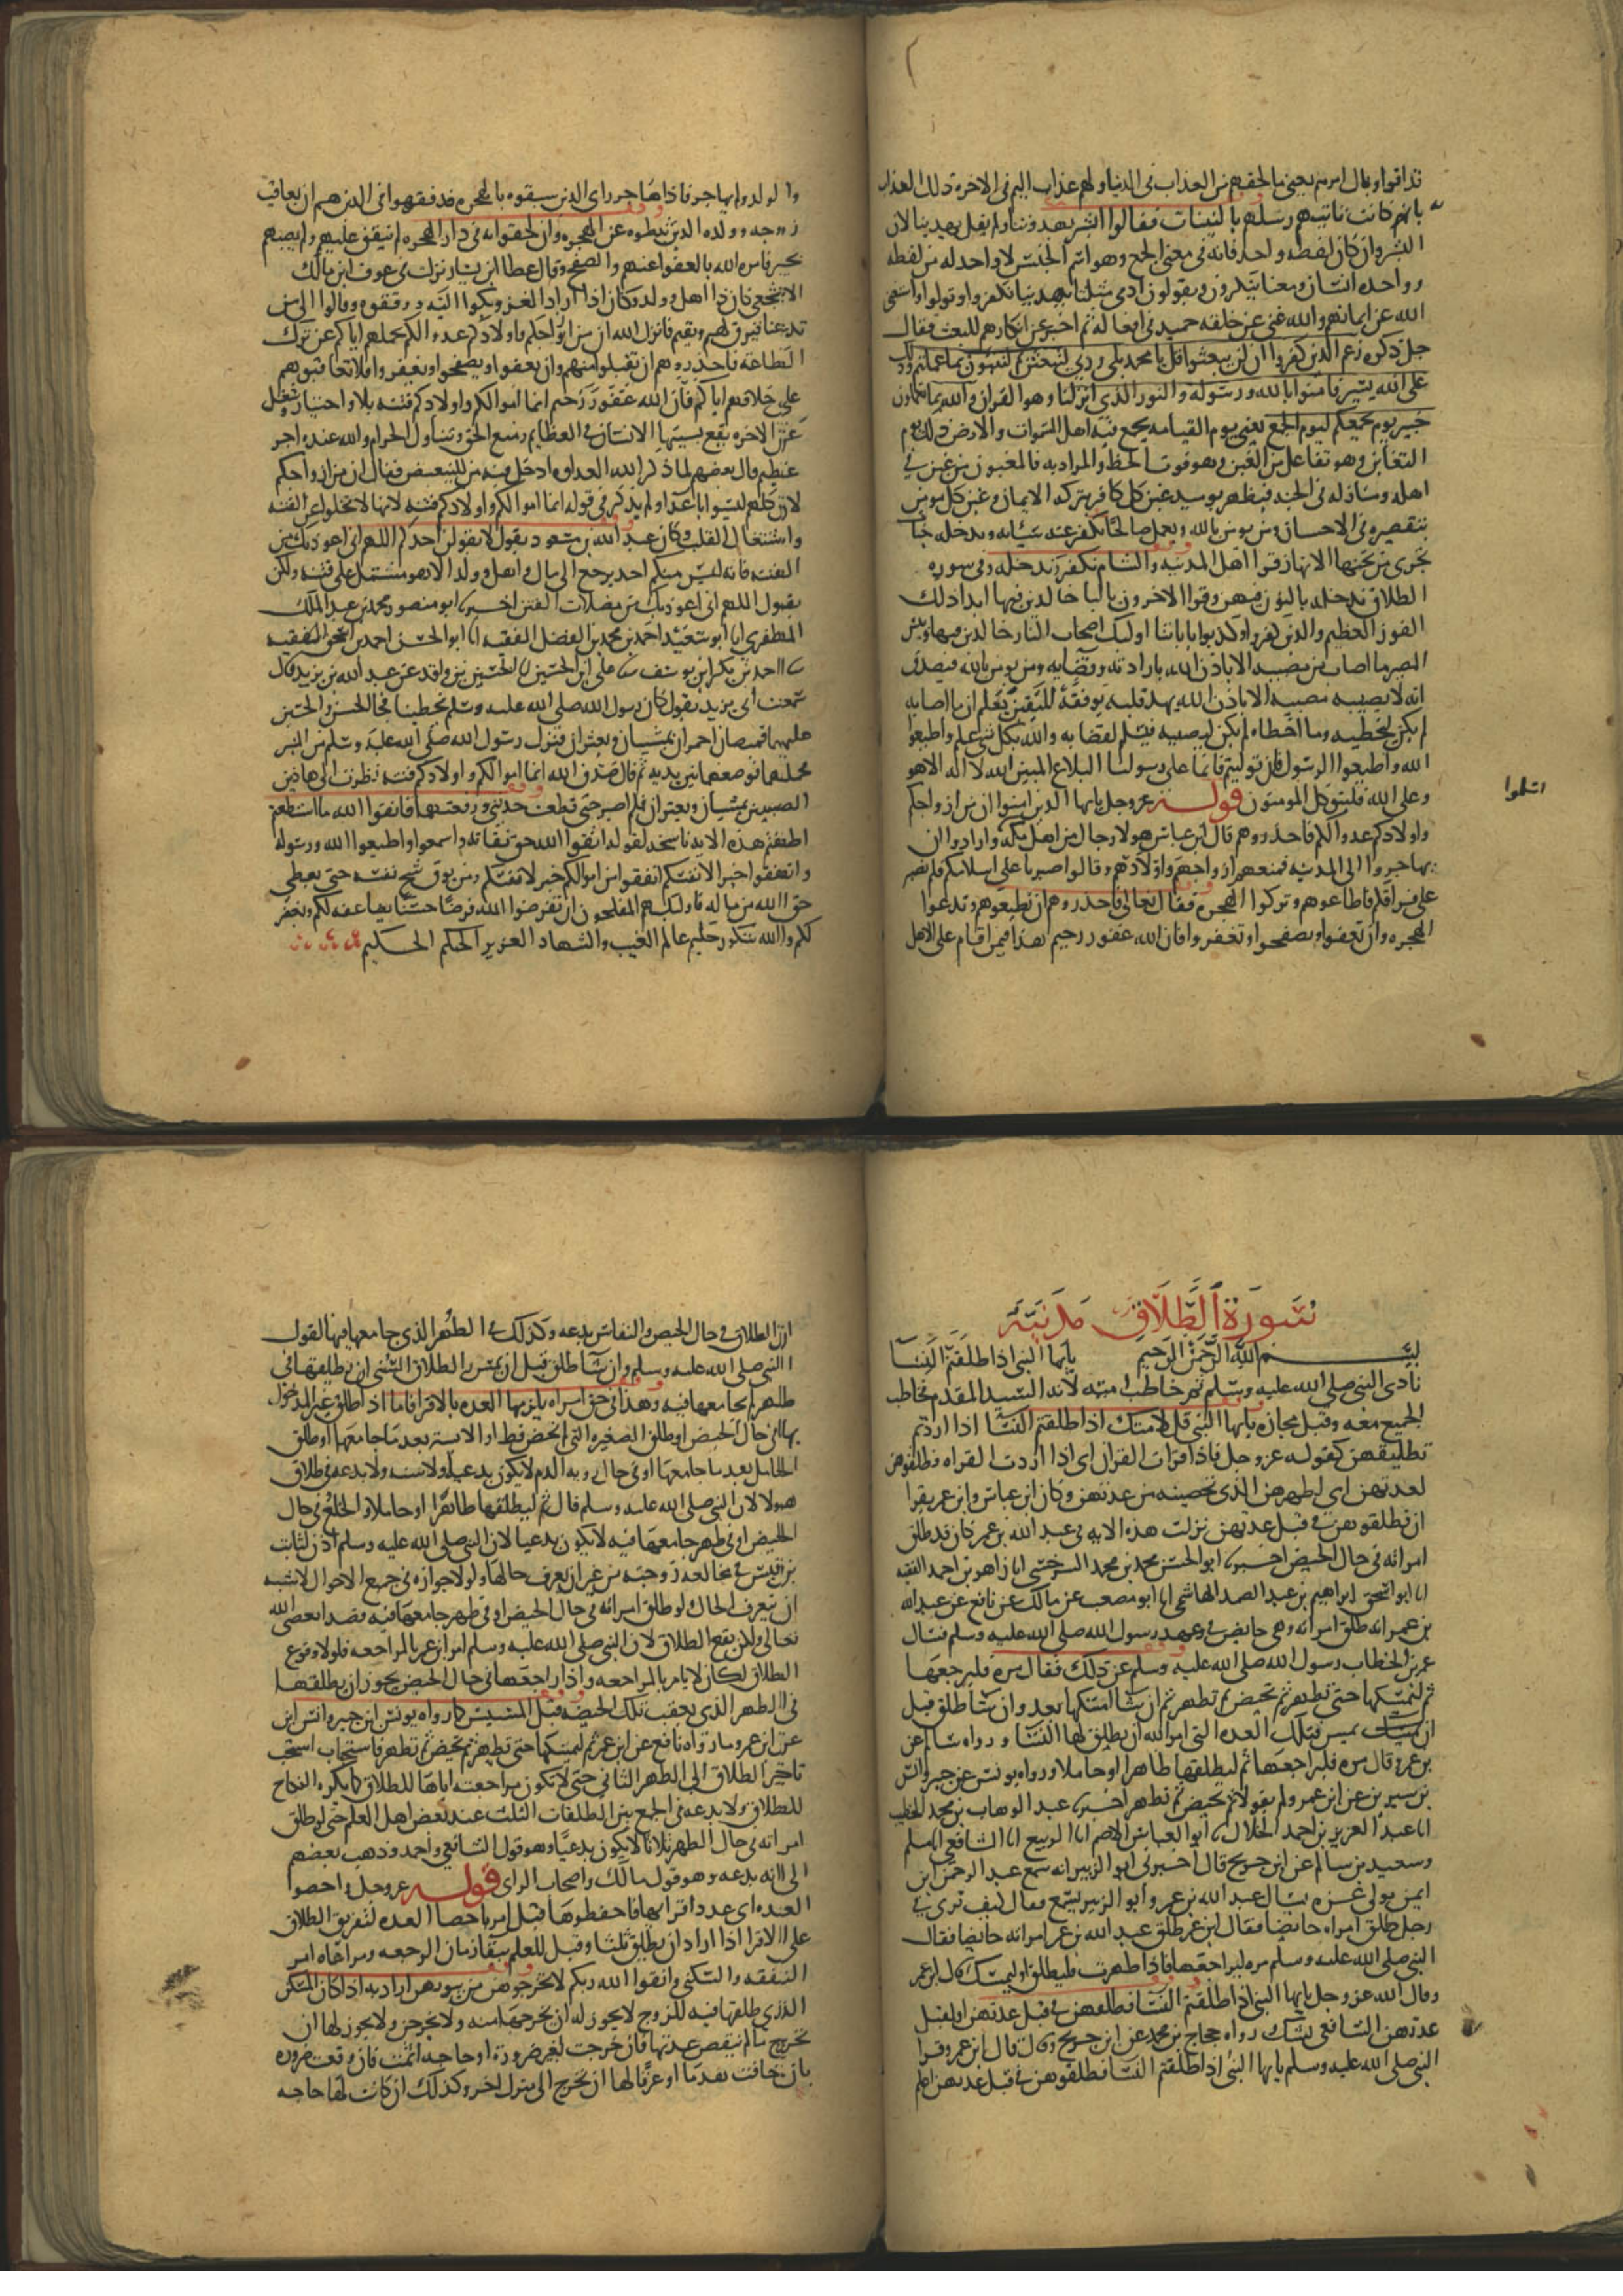 فذاقوا وبال امرهم يعني ما لحقهم من العذاب في الدنيا ولهم عذاب اليم في الاخرة ذلك العذاب
بانهم كانت تاتيهم رسلهم بالبينات فقالوا ابشر يهدوننا ولم يقل يهدينا لان
البشر وان كان لفظه واحد فانه في معنى الجمع وهو اسم الجنس لا واحد له من لفظه
وواحده انسان ومعناها ينكرون ويقولون ادمي مثلنا يهدينا فكفروا وتولوا واستغنى
الله عن ايمانهم والله غني عن خلقه حميد في افعاله ثم اخبر عن انكارهم للبعث فقال
جل ذكره زعم الذين كفروا ان لن يبعثوا قل يا محمد بلى وربي لتبعثن ثم لتنبؤن بما عملتم وذلك
على الله يسير فامنوا بالله ورسوله والنور الذي انزلنا وهو القران والله بما تعملون
خبير يوم يجمعكم ليوم الجمع يعني يوم القيامه يجمع فيه اهل السموات والارض ذلك يوم
التغابن وهو تفاعل من الغبن وهو فوت الحظ والمراد به فالمغبون من غبن في
اهله ومنازله في الجنه فيظهر يوميذ غبن كل كافر بتركه الايمان وغبن كل مومن
بتقصيره في الاحسان ومن يومن بالله ويعمل صالحا نكفر عنه سيئاته وندخله جنات
تجري من تحتها الانهار قرا اهل المدينه والشام نكفر وندخله وفي سورة
الطلاق ندخله بالنون فيهن وقرا الاخرون باليا خالدين فيها ابدا ذلك
الفوز العظيم والذين كفروا وكذبوا باياتنا اوليك اصحاب النار خالدين فيها وبئس
المصير ما اصاب من مصيبه الا باذن الله بارادته وقضايه ومن يومن بالله فيصدق
انه لا يصيبه مصيبه الا باذن الله يهد قلبه يوفقه لليقين يعلم ان ما اصابه
لم يكن ليخطيه وما اخطاه لم يكن ليصيبه فيسلم لقضايه والله بكل شي عليم واطيعوا
الله واطيعوا الرسول فان توليتم فانما على رسولنا البلاغ المبين الله لا اله الا هو
وعلى الله فليتوكل المومنون قوله عز وجل يايها الذين امنوا ان من ازواجكم
واولادكم عدوا لكم فاحذروهم قال ابن عباس هولا رجال من اهل مكه وارادوا ان
يهاجروا الى المدينه فمنعهم ازواجهم واولادهم وقالوا صبرنا على اسلامكم فلم نصبر
على فراقكم فاطاعوهم وتركوا الهجره فقال تعالى فاحذروهم ان تطيعوهم وتدعوا
الهجره وان تعفوا وتصفحوا وتغفروا فان الله غفور رحيم هذا فيمن اقام على الاهل
اسلموا
والولد ولم يهاجر فاذا هاجر راى الذين سبقوه بالهجره قد فقهوا في الدين هم ان يعاقب
زوجه وولده الذين ثبطوه عن الهجره وان لحقوا به في دار الهجره لم ينفق عليهم ولم يصبهم
بخير فامر الله بالعفو عنهم والصفح وقال عطا ابن يسار نزلت في عوف ابن مالك
الاشجعي كان ذا اهل وولد وكان اذا اراد الغزو بكوا اليه ورققوه وقالوا الى من
تدعنا فيرق لهم ويقيم فانزل الله ان من ازواجكم واولادكم عدوا لكم بحملهم اياكم عن ترك
الطاعه فاحذروهم ان تقبلوا منهم وان يعفوا ويصفحوا ويغفروا فلا تعاقبوهم
على خلافهم اياكم فان الله غفور رحيم انما اموالكم واولادكم فتنه بلا واختبار وشغل
عن الاخره يقع بسببها الانسان في العظايم ومنع الحق وتناول الحرام والله عنده اجر
عظيم قال بعضهم لما ذكر الله العداوه ادخل فيه من للتبعيض فقال ان من ازواجكم
لان كلهم ليسوا باعدا ولم يذكر في قوله انما اموالكم واولادكم فتنه لانها لا تخلوا عن الفتنه
واشتغال القلب وكان عبد الله بن مسعود يقول لا يقولن احدكم اللهم اني اعوذ بك من
الفتنه فانه ليس منكم احد يرجع الى مال واهل وولد الا وهو مشتمل على فتنه ولكن
يقول اللهم اني اعوذ بك من مضلات الفتن اخبرنا ابو منصور محمد بن عبد الملك
المظفري انا ابو سعيد احمد بن محمد بن الفضل الفقيه انا ابو الحسن احمد بن اسحق الفقيه
نا احمد بن بكر ابن يوسف نا علي ابن الحسين نا الحسين بن واقد عن عبد الله بن بريد قال
سمعت ابي بريد يقول كان رسول الله صلى الله عليه وسلم يخطبنا فجا الحسن والحسين
عليهما قميصان احمران يمشيان ويعثران فنزل رسول الله صلى الله عليه وسلم من المنبر
فحملهما فوضعهما بين يديه ثم قال صدق الله انما اموالكم واولادكم فتنه نظرت الى هاذين
الصبيين يمشيان ويعثران فلم اصبر حتى قطعت حديثي ورفعتهما فاتقوا الله ما استطعتم
اطقتم هذه الايه ناسخه لقوله اتقوا الله حق تقاته واسمعوا واطيعوا الله ورسوله
وانفقوا خيرا لانفسكم انفقوا من اموالكم خير لانفسكم ومن يوق شح نفسه حتى يعطي
حق الله من ماله فاوليك هم المفلحون ان تقرضوا الله قرضا حسنا يضاعفه لكم ويغفر
لكم والله شكور حليم عالم الغيب والشهاد العزيز الحكم الحكيم
سورة الطلاق مدنية
بسم الله الرحمن الرحيم يايها النبي اذا طلقتم النسا
نادى النبي صلى الله عليه وسلم ثم خاطب امته لانه السيد المقدم فخاطب
الجميع معه وقيل مجازه يايها النبي قل لامتك اذا طلقتم النسا اذا اردتم
تطليقهن كقوله عز وجل فاذا قرات القران اي اذا اردت القراه فطلقوهن
لعدتهن اي لطهرهن الذي تحصينه من عدتهن وكان ابن عباس وابن عمر يقرا
ان تطلقوهن في قبل عدتهن نزلت هذه الايه في عبد الله بن عمر كان قد طلق
امراته في حال الحيض اخبرنا ابو الحسن محمد بن محمد السرخسي انا زاهر بن احمد الفقيه
انا ابو اسحق ابراهيم بن عبد الصمد الهاشمي انا ابو مصعب عن مالك عن نافع عن عبد الله
بن عمر انه طلق امراته وهي حايض في عهد رسول الله صلى الله عليه وسلم فسال
عمر بن الخطاب رسول الله صلى الله عليه وسلم عن ذلك فقال مره فليرجعها
ثم ليمسكها حتى تطهر ثم تحيض ثم تطهر ثم ان شا امسكها بعد وان شا طلق قبل
ان يمس فتلك العده التي امر الله ان يطلق لها النسا ورواه سالم عن
بن عمر وقال مره فليراجعها ثم ليطلقها طاهرا او حاملا ورواه يونس عن جبير وانس
بن سيرين عن ابن عمر ولم يقولا ثم تحيض ثم تطهر اخبرنا عبد الوهاب بن محمد الخطيب
انا عبد العزيز بن احمد الخلال نا ابو العباس الاصم انا الربيع انا الشافعي انا مسلم
وسعيد بن سالم عن ابن جريج قال اخبرني ابو الزبير انه سمع عبد الرحمن ابن
ايمن مولى عزه يسال عبد الله بن عمر وابو الزبير يسمع فقال كيف ترى في
رجل طلق امراه حايضا فقال ابن عمر طلق عبد الله بن عمر امراته حايضا فقال
النبي صلى الله عليه وسلم مره ليراجعها فاذا طهرت فليطلق او ليمسك قال ابن عمر
وقال الله عز وجل يايها النبي اذا طلقتم النسا فطلقوهن في قبل عدتهن او لقبل
عدتهن الشافعي يشك رواه حجاج بن محمد عن ابن جريج وقال قال ابن عمر وقرا
النبي صلى الله عليه وسلم يايها النبي اذا طلقتم النسا فطلقوهن في قبل عدتهن اعلم
ان الطلاق في حال الحيض والنفاس بدعه وكذلك في الطهر الذي جامعها فيها لقول
النبي صلى الله عليه وسلم وان شا طلق قبل ان يمس والطلاق السني ان يطلقها في
طهر لم يجامعها فيه وهذا في حق امراه يلزمها العده بالاقرا فاما اذا طلق غير المدخول
بها في حال الحيض او طلق الصغيره التي لم تحض قط او الايسه بعد ما جامعها او طلق
الحامل بعد ما جامعها او في حال رويه الدم لا يكون بدعيا ولا سنه ولا بدعه في طلاق
هولا لان النبي صلى الله عليه وسلم قال ثم ليطلقها طاهرا او حاملا والخلع في حال
الحيض او في طهر جامعها فيه لا يكون بدعيا لان النبي صلى الله عليه وسلم اذن لثابت
بن قيس في مخالعه زوجته من غير ان يعرف حالها ولولا جوازه في جميع الاحوال لاشبه
ان يتعرف الحال ولو طلق امراته في حال الحيض او في طهر جامعها فيه قصدا يعصي الله
تعالى ولكن يقع الطلاق لان النبي صلى الله عليه وسلم امر ابن عمر بالمراجعه فلولا وقوع
الطلاق لكان لا يامر بالمراجعه واذا راجعها في حال الحيض يجوز ان يطلقها
في الطهر الذي يعقب تلك الحيضه قبل المسيس كما رواه يونس ابن جبير وانس ابن
عن ابن عمر وما رواه نافع عن ابن عمر ثم ليمسكها حتى تطهر ثم تحيض ثم تطهر فاستحباب استحب
تاخير الطلاق الى الطهر الثاني حتى لا تكون مراجعته اياها للطلاق كما يكره النكاح
للطلاق ولا بدعه في الجمع بين الطلقات الثلث عند بعض اهل العلم حتى لو طلق
امراته في حال الطهر ثلاثا لا يكون بدعيا وهو قول الشافعي واحمد وذهب بعضهم
الى انه بدعه وهو قول مالك واصحاب الراى قوله عز وجل واحصوا
العده اي عدد اقرايها فاحفظوها قيل امر باحصا العده لتفريق الطلاق
على الاقرا اذا اراد ان يطلق ثلثا وقيل للعلم ببقا زمان الرجعه ومراعاه امر
النفقه والسكنى واتقوا الله ربكم لا تخرجوهن من بيوتهن اراد به اذا كان المسكن
الذي طلقها فيه للزوج لا يجوز له ان يخرجها منه ولا يخرجن ولا يجوز لها ان
تخرج ما لم تنقض عدتها فان خرجت لغير ضرورة او حاجه اثمت فان وقعت ضروره
بان خافت هدما او غرقا لها ان تخرج الى منزل اخر وكذلك ان كانت لها حاجه